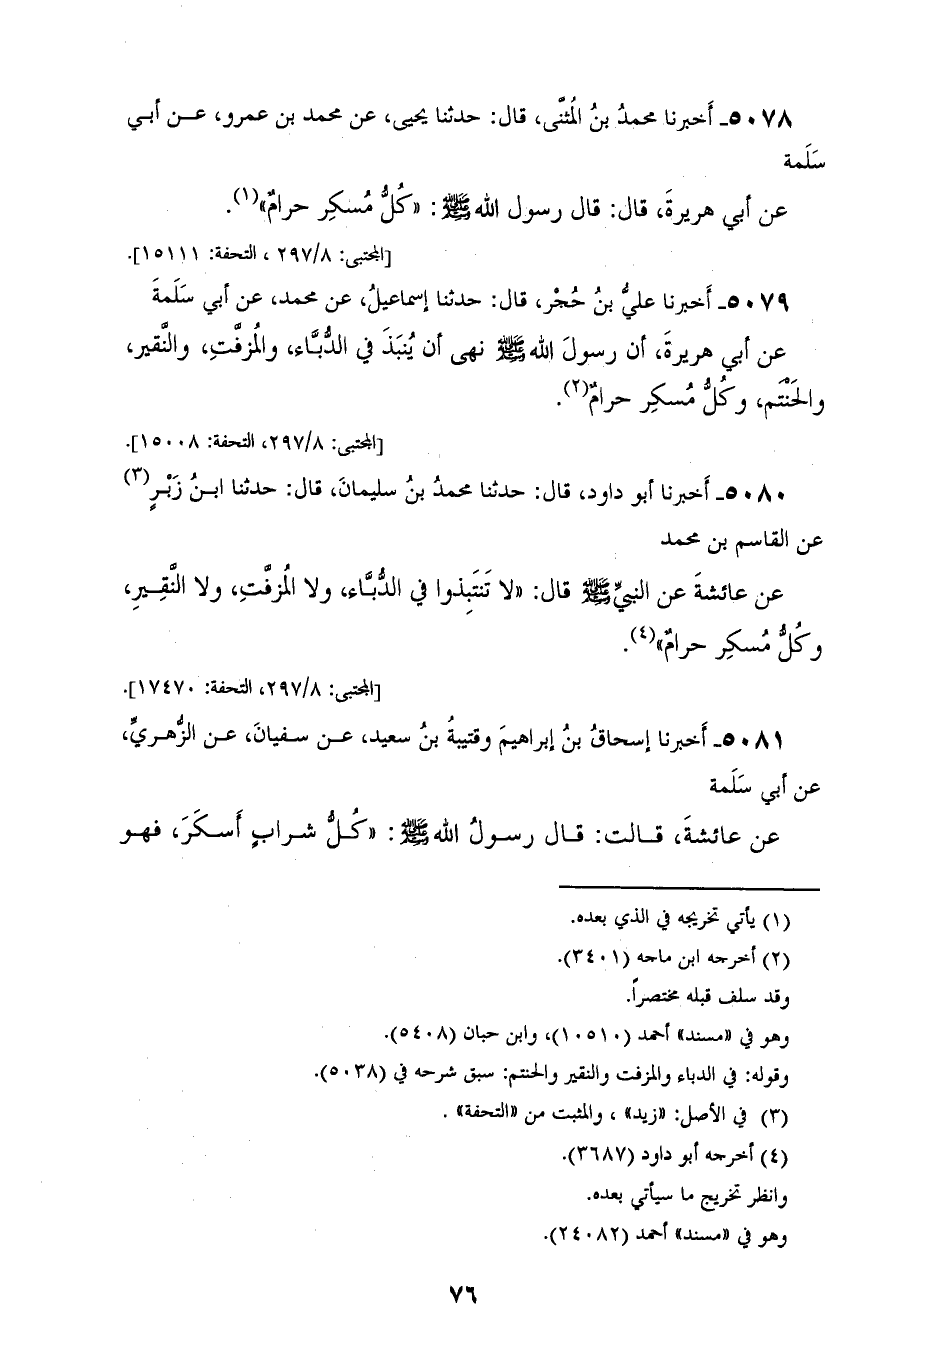 ٥٠٧٨ـ أَخبرنا محمدُ بنُ المُثنَّى، قال: حدثنا يحيى، عن محمد بن عمرو، عـن أبـي
سَلَمة
عن أبي هريرةَ، قال: قال رسول الله ﷺ: «كُلُّ مُسكِر حرامٌ»(١).
[المجتبى: ٢٩٧/٨ ، التحفة: ١٥١١١].
٥٠٧٩ـ أَخبرنا عليُّ بنُ حُجْر، قال: حدثنا إسماعيلُ، عن محمد، عن أبي سَلَمةَ
عن أبي هريرةَ، أن رسولَ الله ﷺ نهى أن يُنبَذَ في الدُّبَّاء، والمُزفَّتِ، والنَّقير،
والحَنْتَم، وكُلُّ مُسكِر حرامٌ(٢).
[المجتبى: ٢٩٧/٨، التحفة: ١٥٠٠٨].
٥٠٨٠ـ أَخبرنا أبو داود، قال: حدثنا محمدُ بنُ سليمانَ، قال: حدثنا ابـنُ زَبْـرٍ(٣)
عن القاسم بن محمد
عن عائشةَ عن النبيِّ ﷺ قال: «لا تَنتَبِذوا في الدُّبَّاء، ولا المُزفَّتِ، ولا النَّقِـيرِ،
وكُلُّ مُسكِر حرامٌ»(٤).
[المجتبى: ٢٩٧/٨، التحفة: ١٧٤٧٠].
٥٠٨١ـ أَخبرنا إسحاقُ بنُ إبراهيمَ وقتيبةُ بنُ سعيد، عـن سـفيانَ، عـن الزُّهـريِّ،
عن أبي سَلَمة
عن عائشةَ، قـالت: قـال رسـولُ الله ﷺ: «كُـلُّ شـرابٍ أَسـكَرَ، فهـو
(١) يأتي تخريجه في الذي بعده.
(٢) أخرجه ابن ماجه (٣٤٠١).
وقد سلف قبله مختصراً.
وهو في «مسند» أحمد (١٠٥١٠)، وابن حبان (٥٤٠٨).
وقوله: في الدباء والمزفت والنقير والحنتم: سبق شرحه في (٥٠٣٨).
(٣) في الأصل: «زيد» ، والمثبت من «التحفة» .
(٤) أخرجه أبو داود (٣٦٨٧).
وانظر تخريج ما سيأتي بعده.
وهو في «مسند» أحمد (٢٤٠٨٢).
٧٦